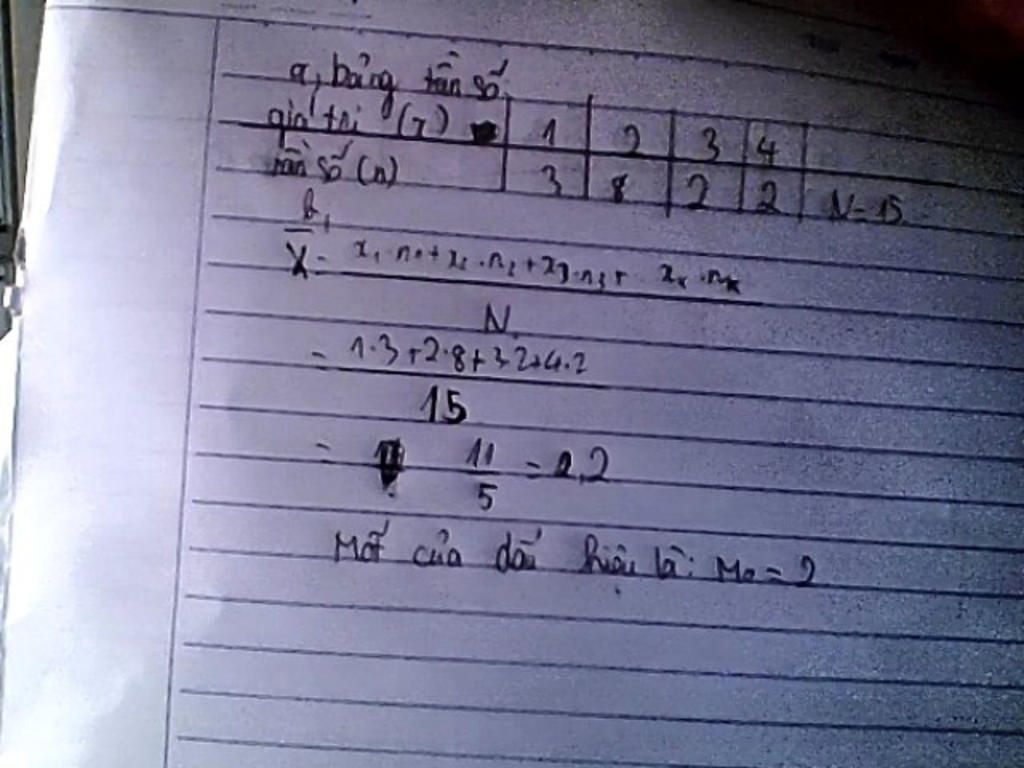 a, bảng tần số
giá trị (x) 1 2 3 4
tần số (n) 3 8 2 2 N=15
b,
X̄ = x₁.n₁+x₂.n₂+x₃.n₃+..xₖ.nₖ
N
= 1.3+2.8+3.2+4.2
15
= 11/5 = 2,2
Mốt của dấu hiệu là: M₀ = 2